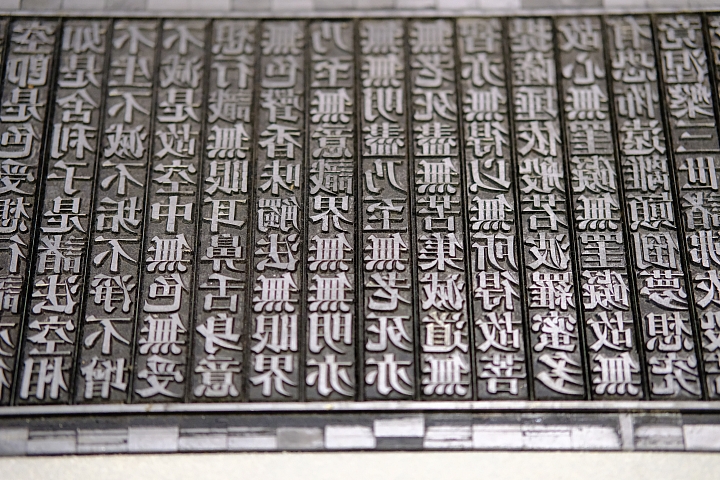 空即是色受想行識亦復
如是舍利子是諸法空相
不生不滅不垢不淨不增
不減是故空中無色無受
想行識無眼耳鼻舌身意
無色聲香味觸法無眼界
乃至無意識界無無明亦
無無明盡乃至無老死亦
無老死盡無苦集滅道無
智亦無得以無所得故菩
提薩埵依般若波羅蜜多
故心無罣礙無罣礙故無
有恐怖遠離顛倒夢想究
竟涅槃三世諸佛依般若